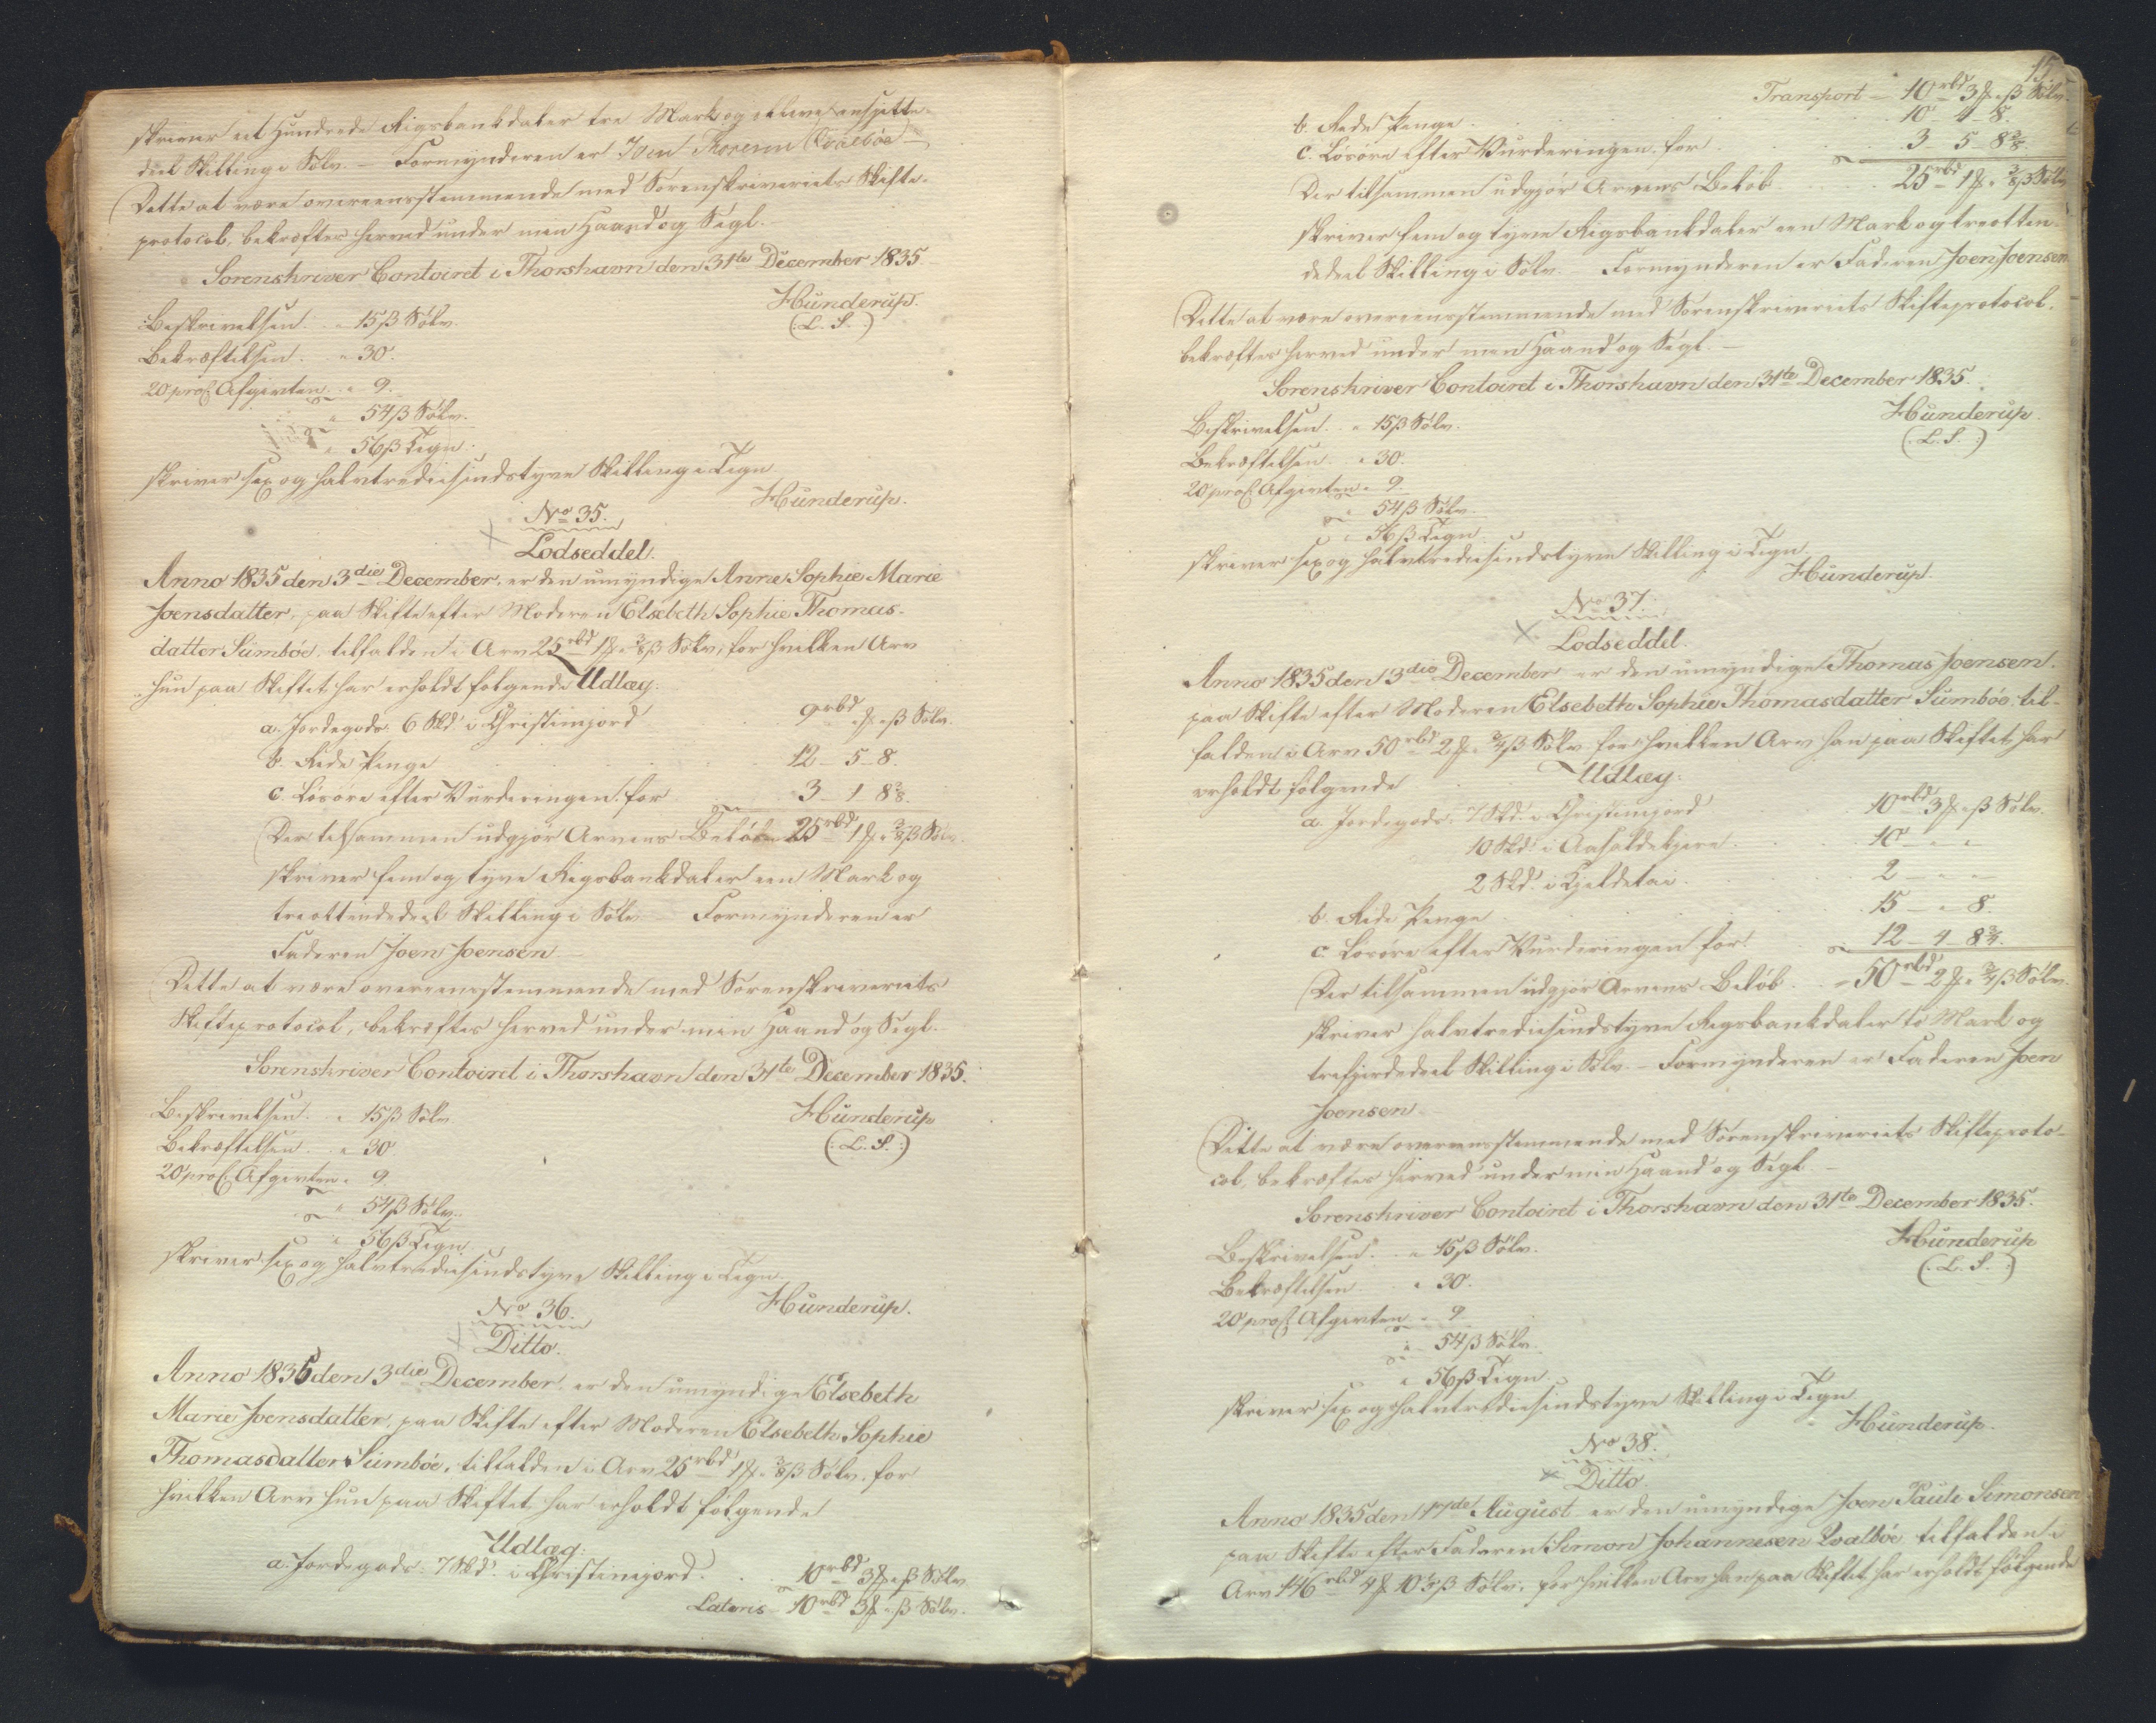 skriver eet Hundrede Rigsbankdaler tre Mark og elleve ensjette-
deel Skilling i Sølv. – Formynderen er Joen Thoresen Qvalböe –
Dette at være overeensstemmende med Sorenskriveriets Skifte-
protocol, bekræftes herved under min Haand og Segl.
Sorenskriver Contoiret i Thorshavn den 31te December 1835.
Hunderup.
(: L. S. :)
Beskrivelsen . „ 15 β Sølv.
Bekræftelsen . „ 30.
20 proC Afgivten . „ 9.
„ 54 β Sølv.
„ 56 β Tegn.
skriver sex og halvtrediesindstyve Skilling i Tegn
Hunderup.
No 35.
Lodseddel.
Anno 1835 den 3die December, er den umyndige Anne Sophie Marie
Joensdatter, paa Skifte efter Moderen Elsebeth Sophie Thomas-
datter Sumböe, tilfalden i Arv 25 rbd 1 ꟻ „ 3/8 β Sølv, for hvilken Arv
hun paa Skiftet har erholdt følgende Udlæg:
a. Jordegods: 6 Skd. i Christinejord 9 rbd „ ꟻ „ β Sølv.
b. Rede Penge 12 – 5 – 8.
c. Løsøre efter Vurderingen for 3 – 1 8 3/8.
Der tilsammen udgjør Arvens Beløb 25 rbd 1 ꟻ „ 3/8 β Sølv.
skriver fem og tyve Rigsbankdaler een Mark og
treottendedeel Skilling i Sølv – Formynderen er
Faderen Joen Joensen –
Dette at være overeensstemmende med Sorenskriveriets
Skifteprotocol, bekræftes herved under min Haand og Segl.
Sorenskriver Contoiret i Thorshavn den 31te December 1835.
Beskrivelsen . „ 15 β Sølv
Hunderup
Bekræftelsen . „ 30.
(: L. S. :)
20 proC Afgivten „ 9.
„ 54 β Sølv.
„ 56 β Tegn.
skriver sex og halvtrediesindstyve Skilling i Tegn.
Hunderup.
No 36.
Ditto.
Anno 1835 den 3die December, er den umyndige Elsebeth
Marie Joensdatter, paa Skifte efter Moderen Elsebeth Sophie
Thomasdatter Sumböe, tilfalden i Arv 25 rbd 1 ꟻ „ 3/8 β Sølv, for
hvilken Arv hun paa Skiftet har erholdt følgende
Udlæg:
a. Jordegods: 7 Skd. i Christinejord . 10 rbd 3 ꟻ „ β Sølv
Lateris – 10 rbd 3 ꟻ „ β Sølv.
15.
Transport – 10 rbd 3 ꟻ „ β Sølv.
b. Rede Penge 10 – 4 – 8.
c. Løsøre efter Vurderingen for 3 – 5 – 8 3/8.
Der tilsammen udgjør Arvens Beløb 25 rbd 1 ꟻ „ 3/8 β Sølv
skriver fem og tyve Rigsbankdaler een Mark og treotten-
dedeel Skilling i Sølv. – Formynderen er Faderen Joen Joensen
Dette at være overeensstemmende med Sorenskriveriets Skifteprotocol,
bekræftes herved under min Haand og Segl. –
Sorenskriver Contoiret i Thorshavn den 31te December 1835.
Hunderup.
Beskrivelsen . „ 15 β Sølv.
(: L. S. :)
Bekræftelsen . „ 30.
20 proC Afgivten „ 9.
„ 54 β Sølv.
„ 56 β Tegn.
skriver sex og halvtrediesindstyve Skilling i Tegn
Hunderup.
No 37.
Lodseddel.
Anno 1835 den 3die December er den umyndige Thomas Joensen.
paa Skifte efter Moderen Elsebeth Sophie Thomasdatter Sumböe, til-
falden i Arv 50 rbd 2 ꟻ „ 3/4 β Sølv for hvilken Arv han paa Skiftet har
erholdt følgende Udlæg:
a. Jordegods: 7 Skd. i Christinejord 10 rbd 3 ꟻ „ β Sølv.
10 Skd. i 10 – „ –
2 Skd. i 2 – „ –
b. Rede Penge 15 – „ – 8.
c. Løsøre efter Vurderingen for 12 – 4 – 8 3/4.
Der tilsammen udgjør Arvens Beløb . 50 rbd 2 ꟻ „ 3/4 β Sølv.
skriver halvtrediesindstyve Rigsbankdaler to Mark og
trefjerdedeel Skilling i Sølv. – Formynderen er Faderen Joen
Joensen.
Dette at være overeensstemmende med Sorenskriveriets Skifteproto-
col, bekræftes herved under min Haand og Segl. –
Sorenskriver Contoiret i Thorshavn den 31te December 1835.
Beskrivelsen . „ 15 β Sølv.
Hunderup
Bekræftelsen „ 30.
(: L. S. :)
20 proC Afgivten „ 9
„ 54 β Sølv.
„ 56 β Tegn.
skriver sex og halvtrediesindstyve Skilling i Tegn
Hunderup.
No 38.
Ditto.
Anno 1835 den 17de August er den umyndige Joen Pauli Simonsen
paa Skifte efter Faderen Simon Johannesen Qvalböe tilfalden i
Arv 146 rbd 4 ꟻ 10 β Sølv, for hvilken Arv han paa Skiftet har erholdt følgende